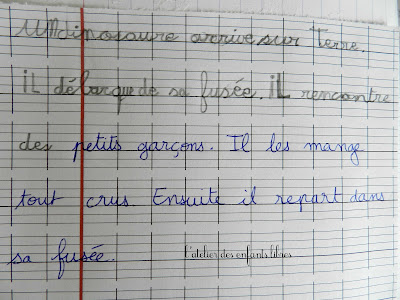 UNdinosaure arrive sur Terre.
iL débarque de sa fusée. iL rencontre
des petits garçons. Il les mange
tout crus. Ensuite il repart dans
sa fusée.
L'atelier des enfants libres